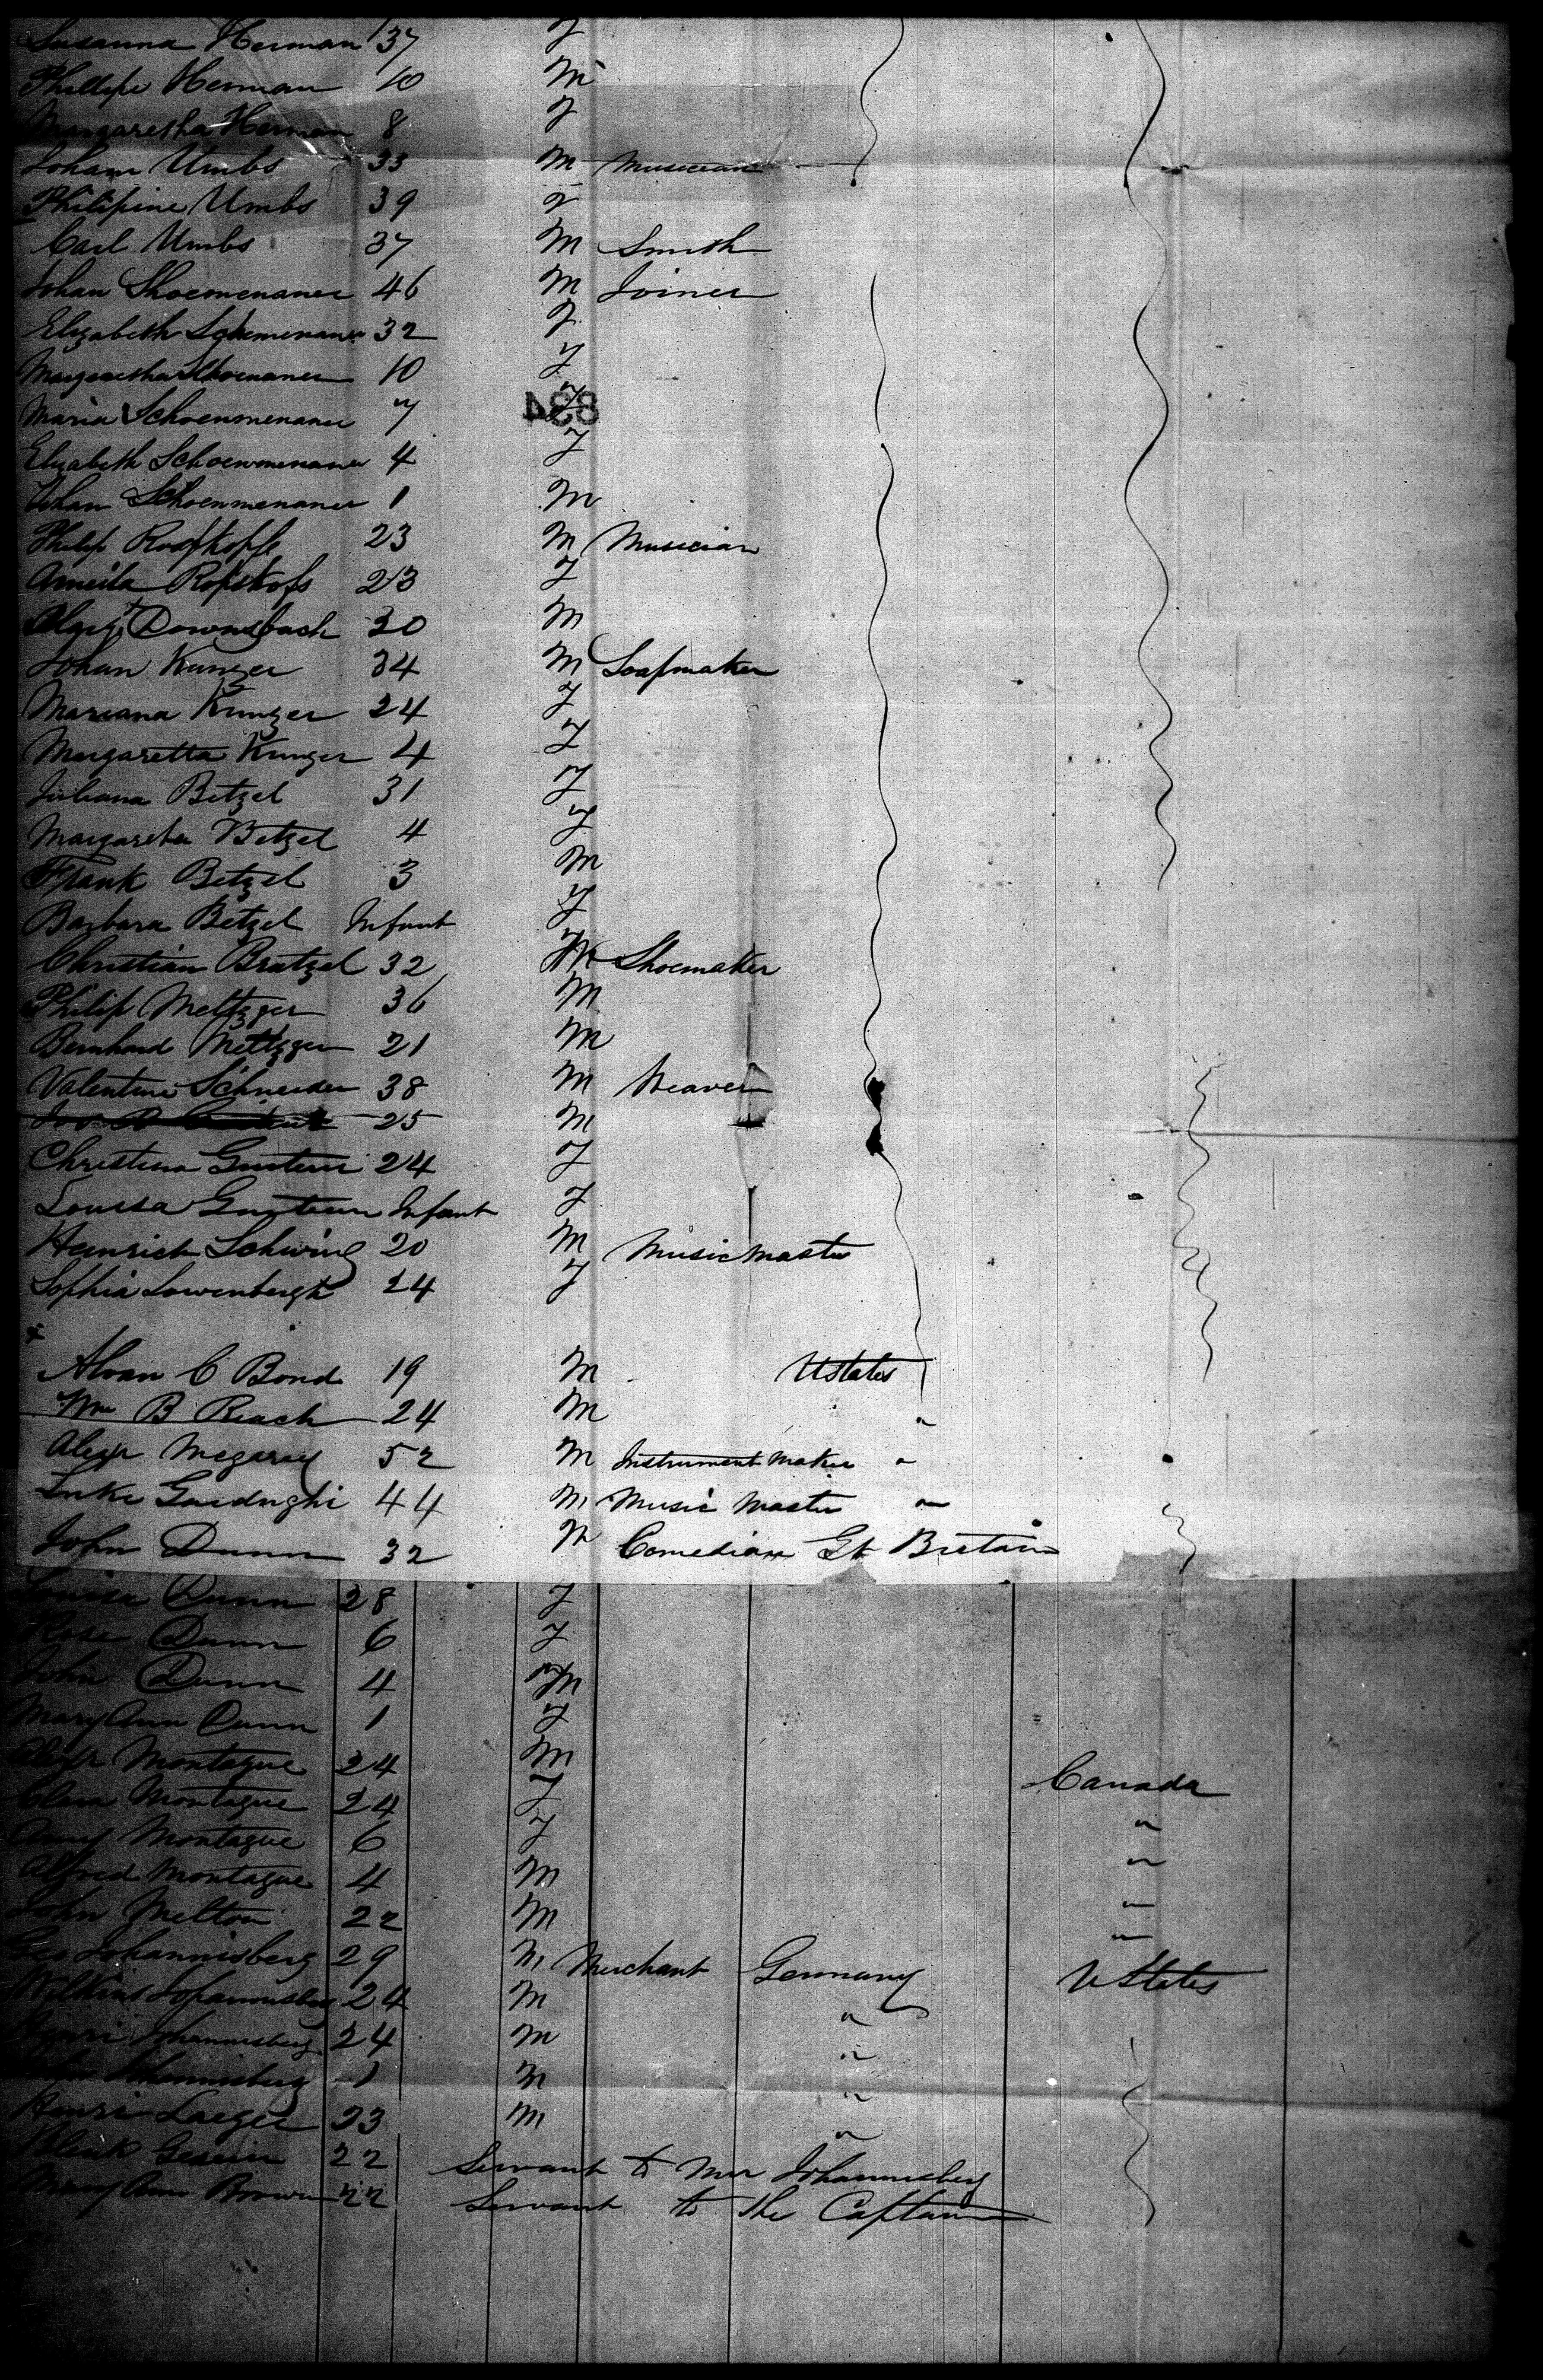 Susanna Herman 37 F
Phillipe Herman 10 M
Margaretha Herman 8 F
Johann Umbs 33 M Musician
Philipine Umbs 39 F
Carl Umbs 37 M Smith
Johan Shoemenaner 46 M Joiner
Elizabeth Schemenaner 32 F
Margaretha Shoenaner 10 F
Maria Schoenmenaner 7 F
834
Elizabeth Schoenmenaner 4 F
Johan Schoenmenaner 1 M
Philip 23 M Musician
Ameila 23 F
Downsbach 30 M
Johan Kunzer 34 M Soapmaker
Mariana Kunzer 24 F
Margaretta Kunzer 4 F
Juliana Betzel 31 F
Margaretha Betzel 4 F
Frank Betzel 3 M
Barbara Betzel Infant F
Christian Bratzel 32 M Shoemaker
Philip Meltzger 36 M
Bernhard Meltzger 21 M
Valentine Schneider 38 M Weaver
25 M
Christina 24 F
Louisa Infant F
Heinrich Schwing 20 M Music Master
Sophia Lowenbergh 24 F
Alvan C Bond 19 M U States
Wm B Reach 24 M "
Alexr Megarey 52 M Instrument Maker "
Luke 44 M Music Master "
John Dunn 32 M Comedian Gt Britain
Louisa Dunn 28 F
Rose Dunn 6 F
John Dunn 4 M
Mary Ann Dunn 1 F
Montague 24 M Canada
Clara Montague 24 F "
Amy Montague 6 F "
Alfred Montague 4 M "
John Melton 22 M "
Geo Johannisberg 29 M Merchant Germany U States
Johannisberg 24 M "
Henri Johannisberg 24 M "
Johannisberg 1 M "
Henri Laeger 23 M "
22 Servant to Mr Johannisberg
Mary Ann Brown 22 Servant to the Captain